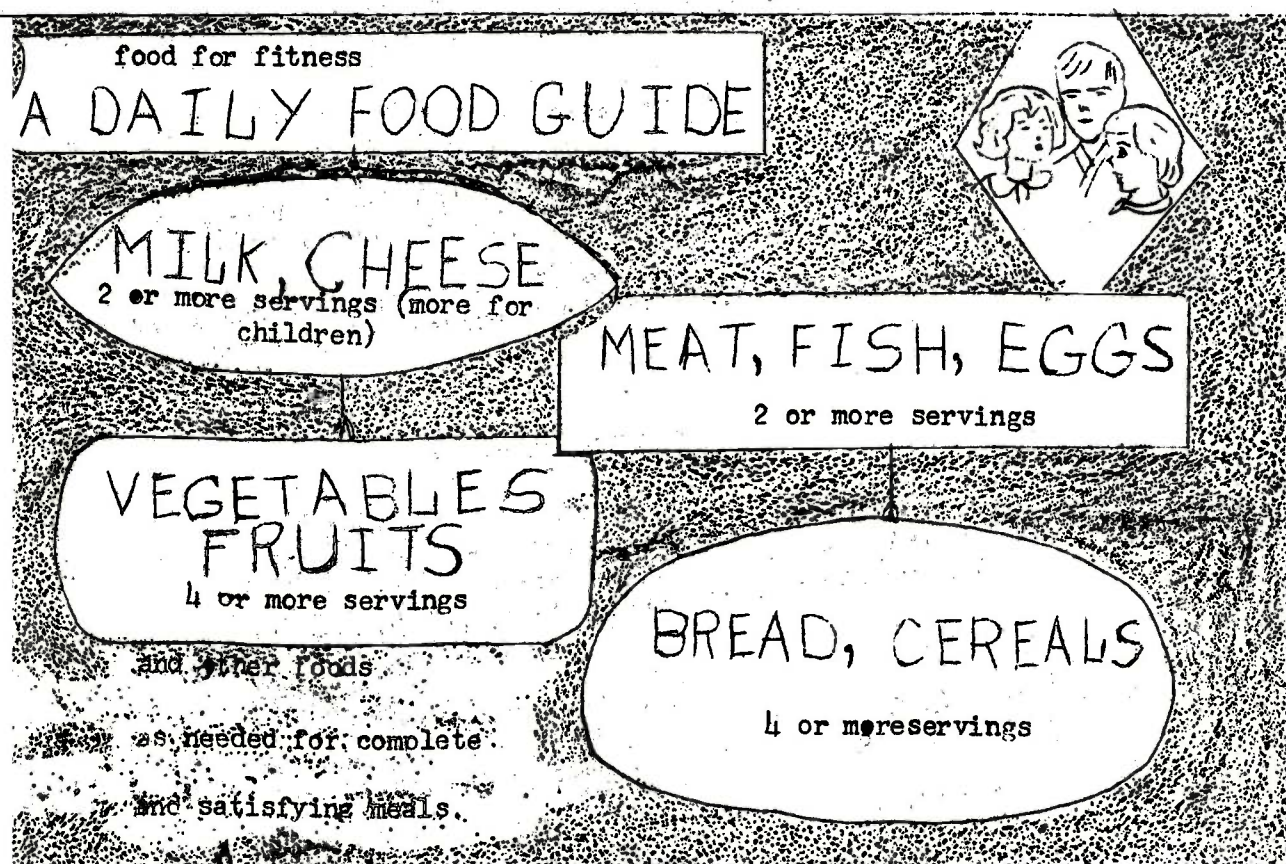 food for fitness
A DAILY FOOD GUIDE
MILK, CHEESE
2 or more servings (more for
children)
MEAT, FISH, EGGS
2 or more servings
VEGETABLES
FRUITS
4 or more servings
BREAD, CEREALS
4 or moreservings
and other foods
as needed for complete
and satisfying meals.